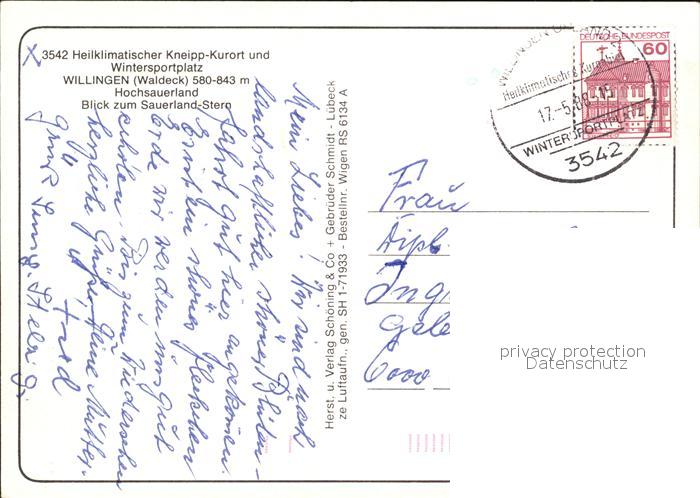 3542 Heilklimatischer Kneipp-Kurort und
Wintersportplatz
WILLINGEN (Waldeck) 580-843 m
Hochsauerland
Blick zum Sauerland-Stern
Meine Liebes! Wir sind nach
landschaftlicher schöner Blüten-
fahrt gut hier angekommen.
ein schönes Fleckchen
Erde wir werden uns gut
erholen. Bis zum Wiedersehen
herzliche Grüße, Deine Mutter
Gruß
Herst. u. Verlag Schöning & Co + Gebrüder Schmidt - Lübeck
ze Luftaufn., gen. SH 1-71933 - Bestellnr. Wigen RS 6134 A
DEUTSCHE BUNDESPOST
60
WILLINGEN
Heilklimatischer Kurort
17.-5.88-15
WINTERSPORTPLATZ
3542
Frau
Dipl.
Ing
6000
privacy protection
Datenschutz